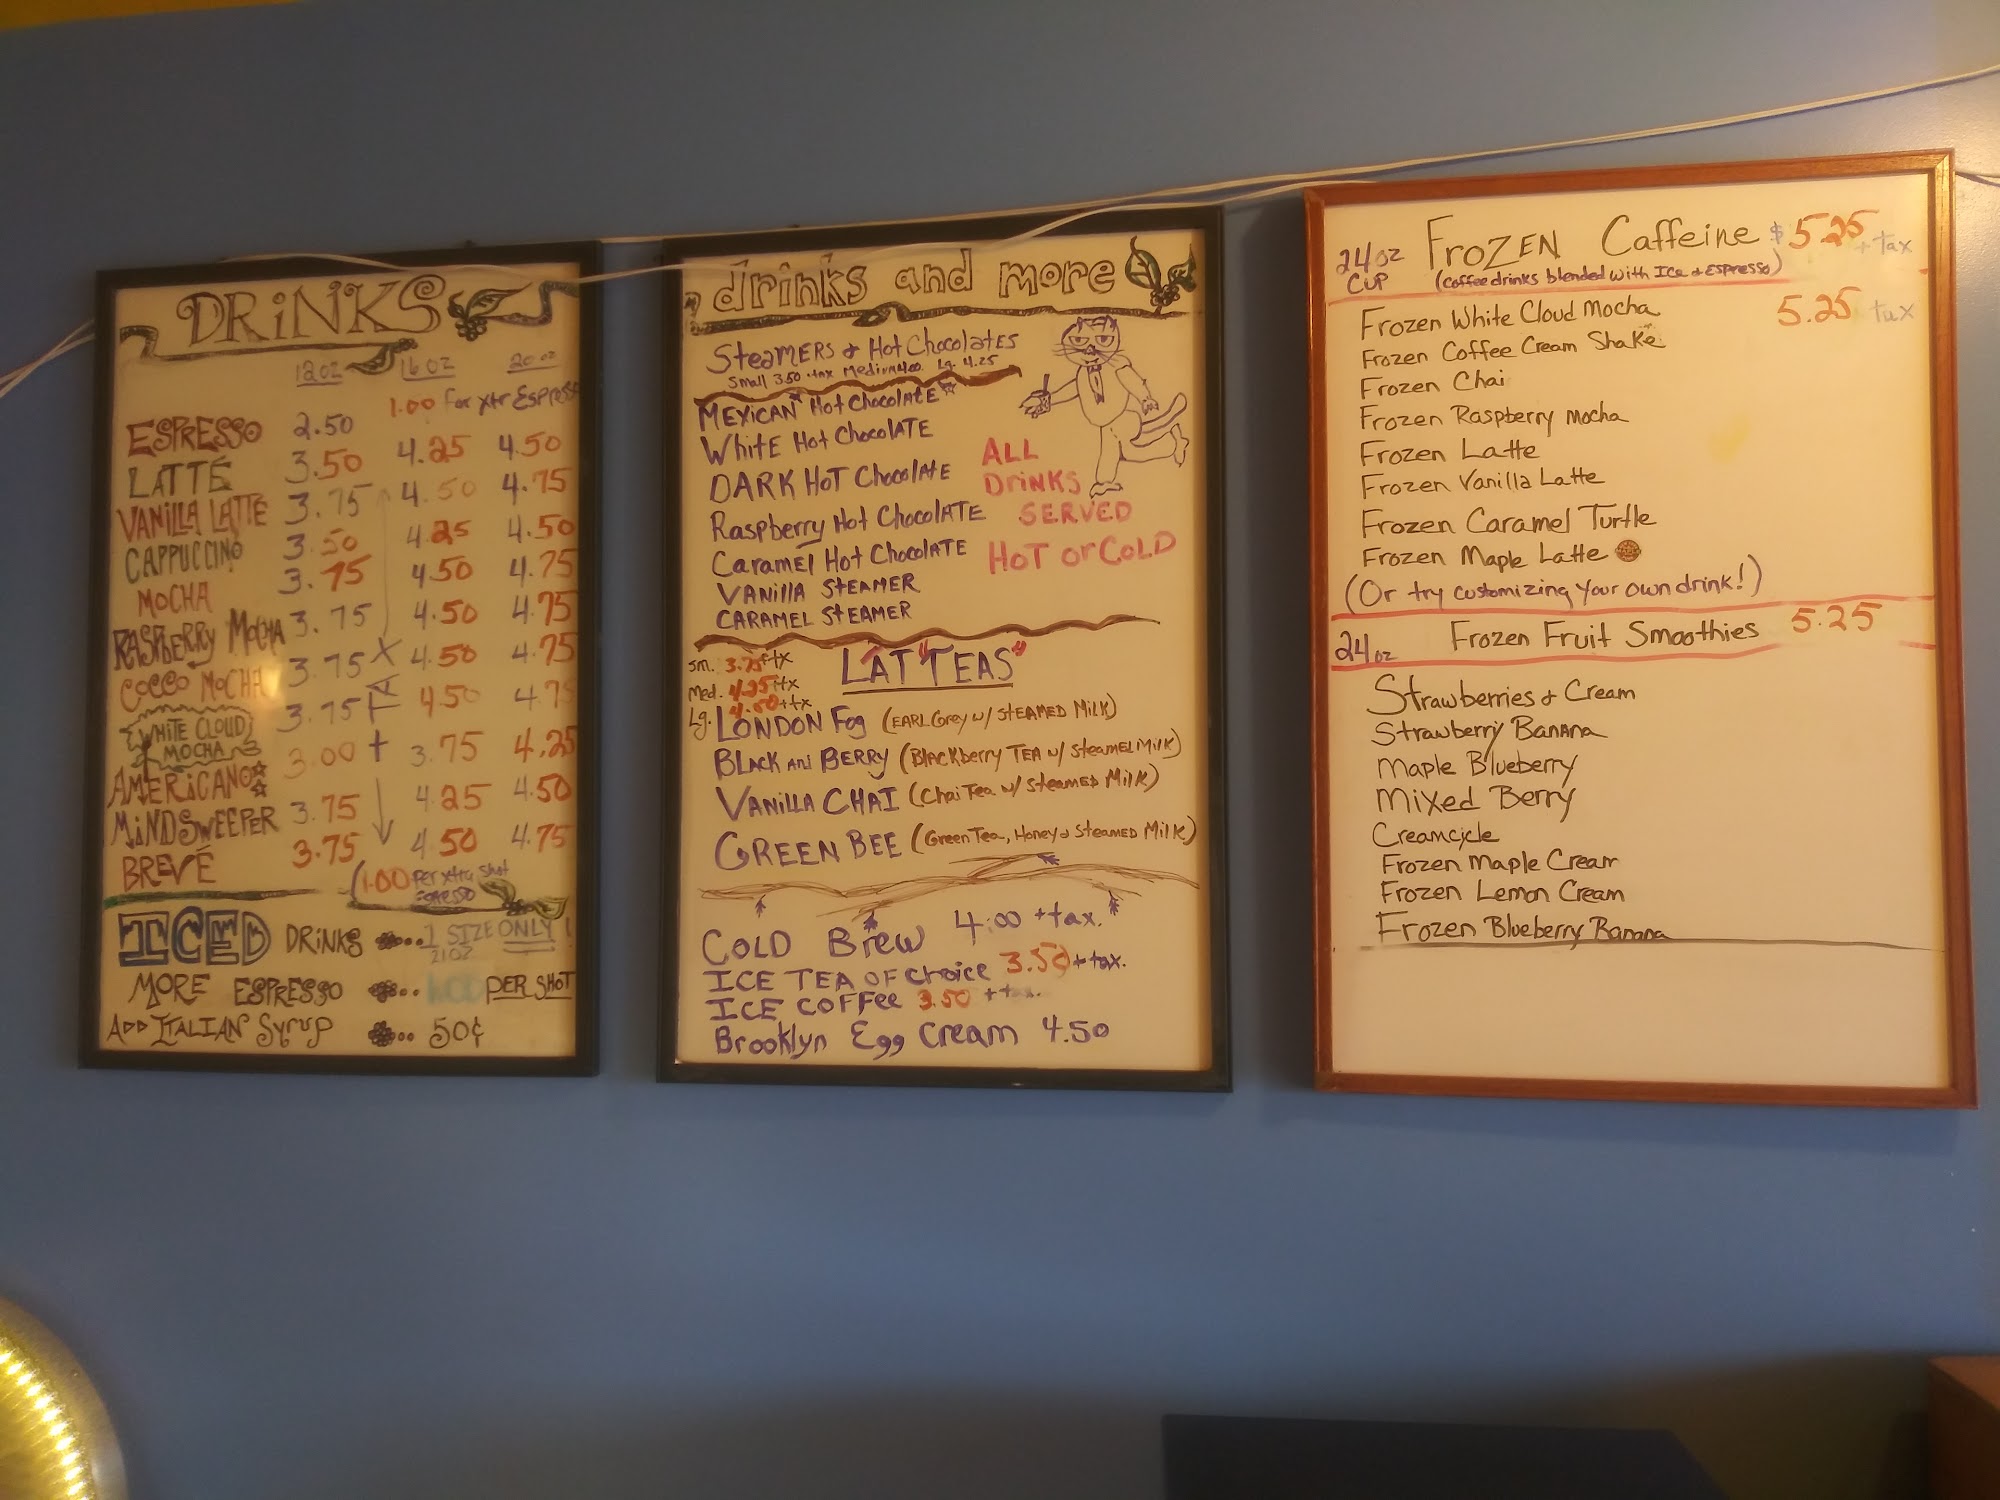 DRiNKS
12 OZ 16 OZ 20 OZ
ESPRESSO 2.50 1.00 For xtr Espress
LATTÉ 3.50 4.25 4.50
VANILLA LATTE 3.75 4.50 4.75
CAPPUCCINO 3.50 4.25 4.50
MOCHA 3.75 4.50 4.75
RASPBERRY MOCHA 3.75 4.50 4.75
COCCO MOCHA 3.75 4.50 4.75
WHITE CLOUD MOCHA 3.75 4.50 4.75
AMERICANO 3.00 3.75 4.25
MiNDSWEEPER 3.75 4.25 4.50
BREVÉ 3.75 4.50 4.75
+ TAX
(1.00 Per xtra shot
ICED DRiNKS ... 1 SIZE ONLY!
21 OZ
MORE ESPRESSO ... PER SHOT
ADD ITALIAN Syrup ... 50¢
drinks and more
STEAMERS & HOT CHOCOLATES
Small 3.50 + tax Medium 4.00 Lg. 4.25
MEXICAN Hot ChocolatE
WhitE Hot ChocolATE
DARK HOT ChocolatE
Raspberry Hot ChocolATE
Caramel Hot ChocolATE
VANIllA STEAMER
CARAMEL STEAMER
ALL
DRiNKS
SERVED
HOT or COLD
LAT"TEAS"
sm. 3.75+tx
med. 4.25+tx
Lg. 4.50++tx
LONDON Fog (EARL Grey w/ STEAMED MilK)
BLACK AND BERRY (BlACKberry TEA w/ STEAMEL MilK)
VANILLA CHAI (Chai Tea w/ STEAMED MilK)
GREEN BEE (Green Tea, Honey & STEAMED MilK)
COLD BrEW 4:00 + tax.
ICE TEA OF Choice 3.50 + tax.
ICE COFFee 3.50 + tax.
Brooklyn Egg Cream 4.50
24 oz CUP FroZEN Caffeine $5.25 + tax
(coffee drinks blended with Ice & Espresso)
Frozen White Cloud Mocha 5.25 tax
Frozen Coffee Cream Shake
Frozen Chai
Frozen Raspberry mocha
Frozen Latte
Frozen Vanilla Latte
Frozen Caramel Turtle
Frozen Maple Latte
(Or try customizing your own drink!)
24 oz Frozen Fruit Smoothies 5.25
Strawberries & Cream
Strawberry Banana
Maple Blueberry
Mixed Berry
Creamcicle
Frozen Maple Cream
Frozen Lemon Cream
Frozen Blueberry Banana